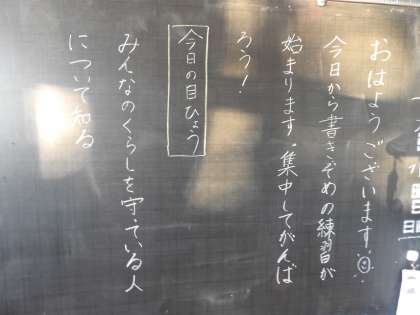 おはようございます。
今日から書きぞめの練習が
始まります。集中してがんば
ろう!
今日の目ひょう
みんなのくらしを守っている人
について知る